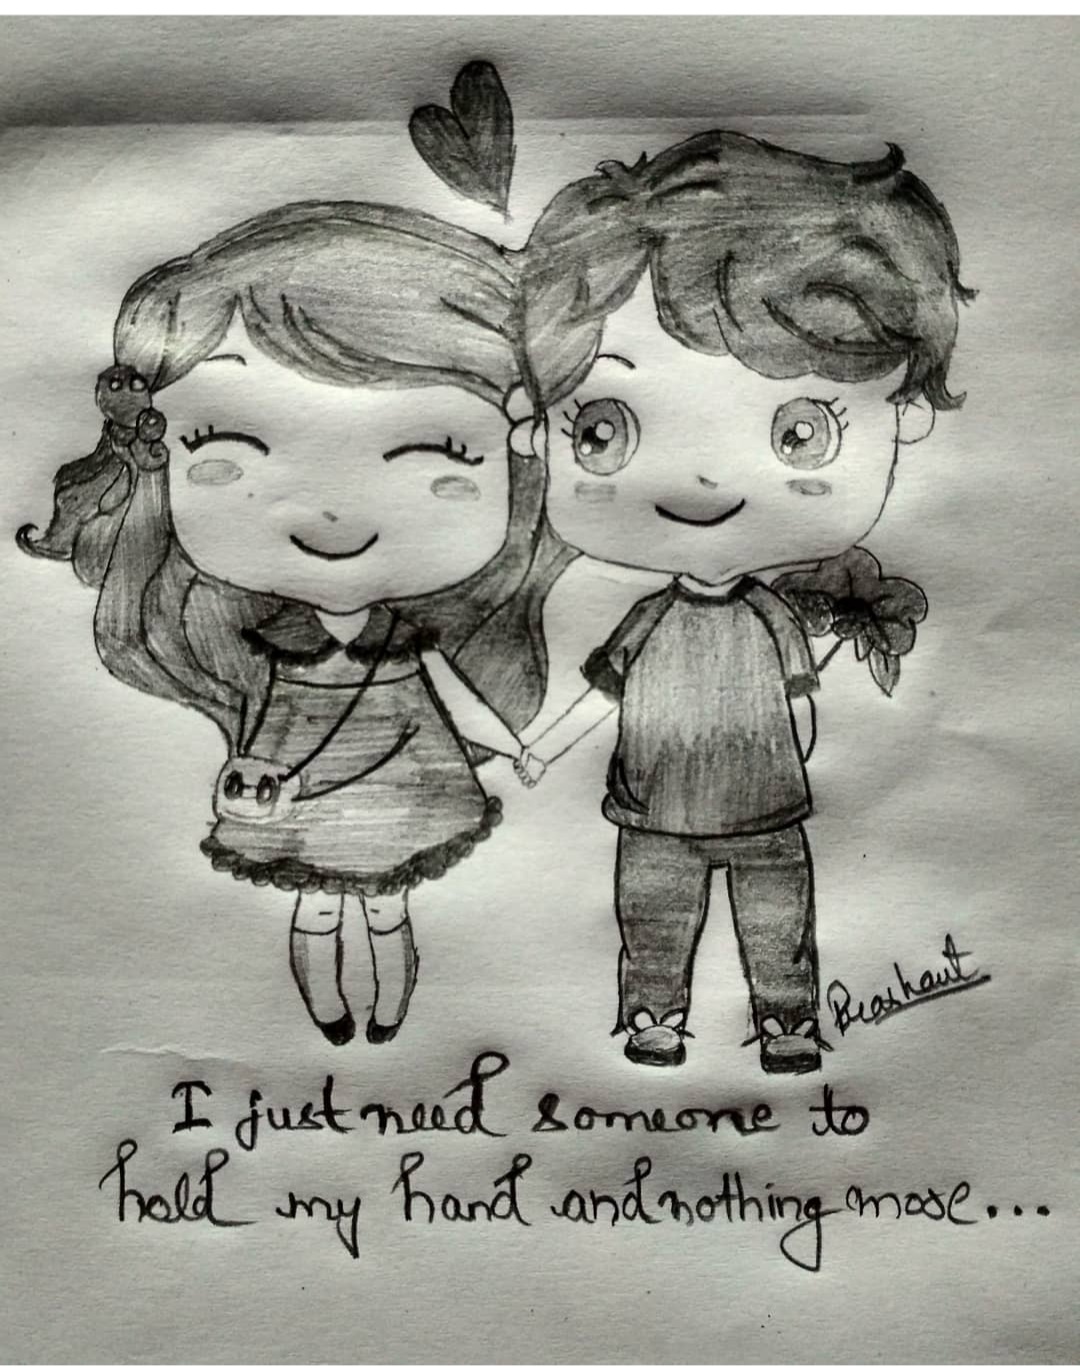 Prashant
I just need someone to
hold my hand and nothing more...